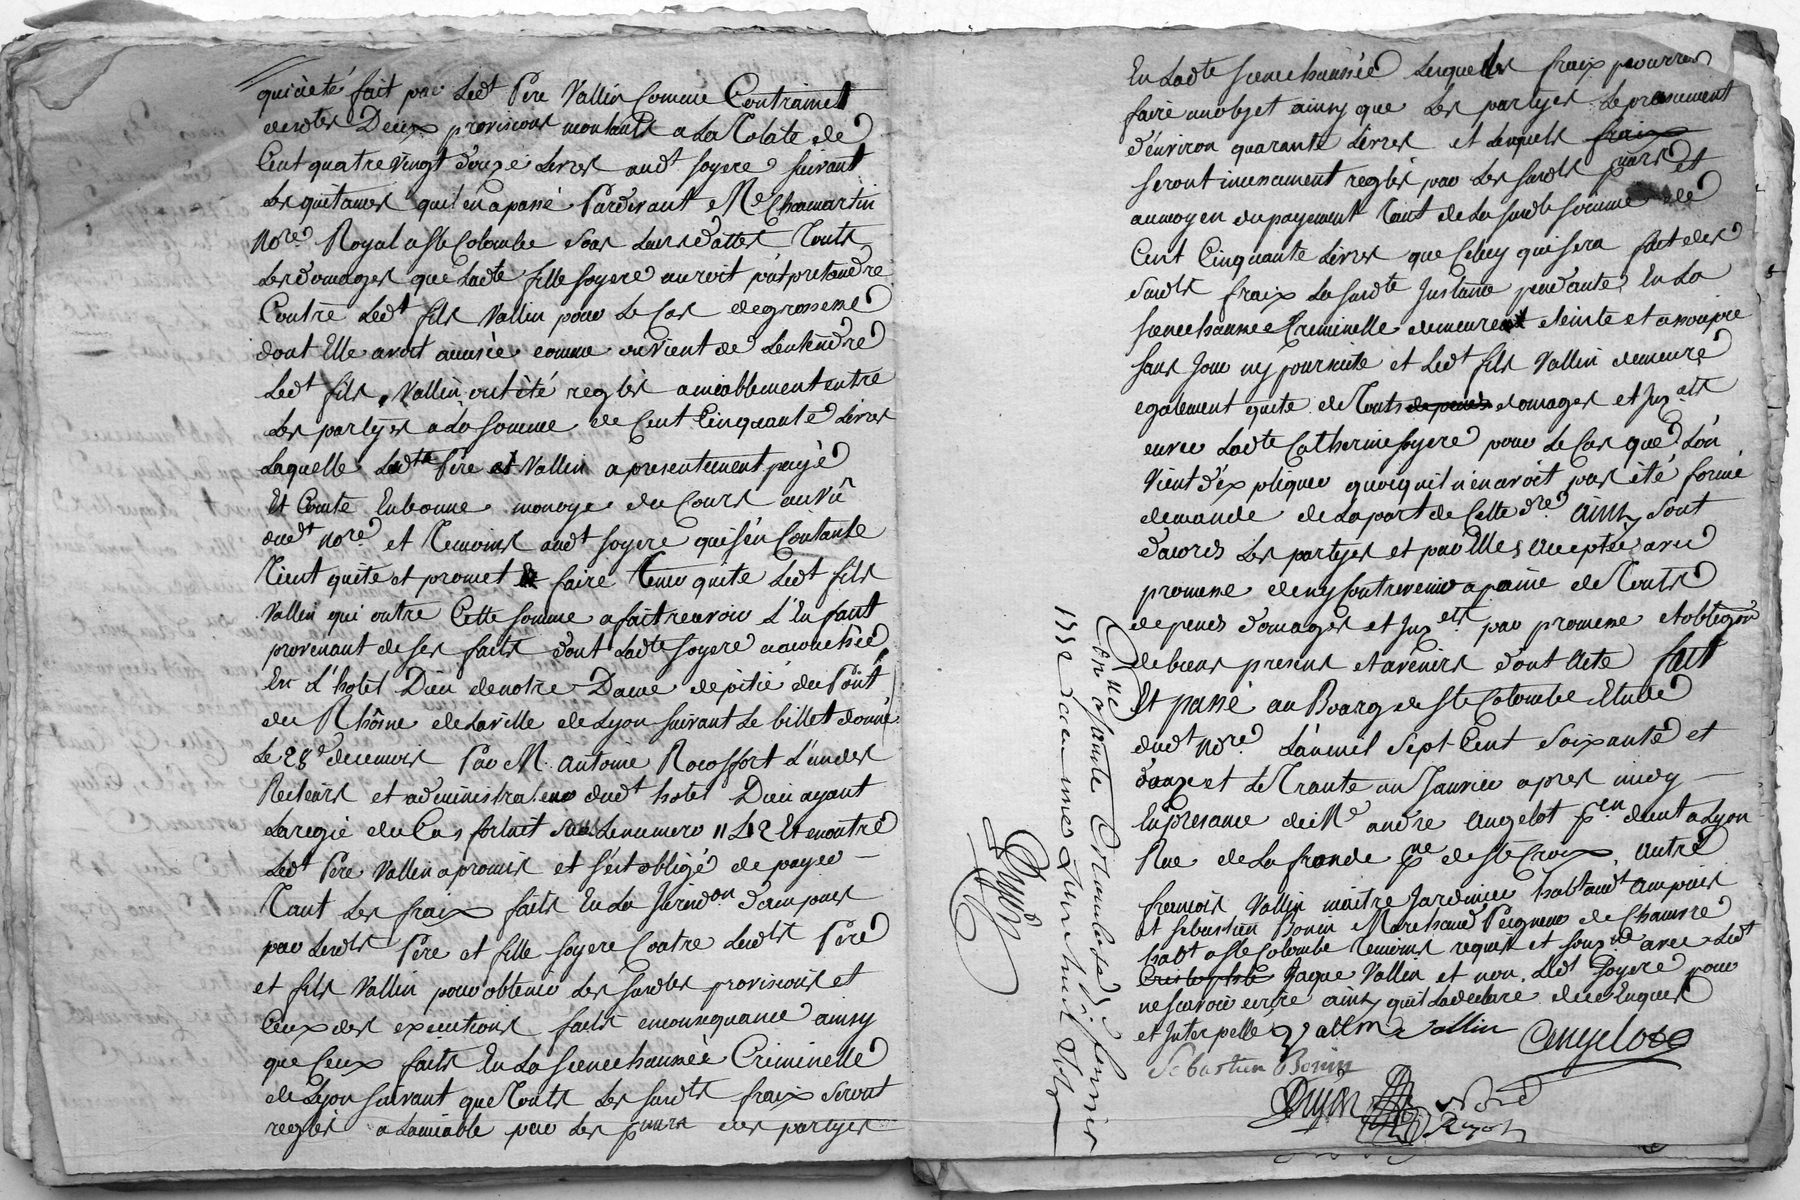 qui a eté fait par Ledt Pere Vallin Comme Contraint
desdtes Deux provisions montants a La Totalite de
Cent quatre vingt douze Livres audt soyere suivant
Les quitances quil en a passé Pardevant Me Chamartin
Nore Royal a Ste Colombe sous Leurs dattes Touts
Les domages que Ladte fille soyere auroit pút pretandre
Contre Ledt fils Vallin pour Le Cas de grossesse
dont Elle avoit accusée comme on vient de L'entendre
Ledt fils Vallin ont été reglés amiablement entre
Les partyes a La somme de Cent Cinquante Livres
Laquelle Ledt Pere Vallin a presentement payé
Et Comté En bonne monoye du Cours au Vû
dudt nore et Temoins audt soyere qui s'en Contante
Tient quite et promet faire Tenir quite Ledt fils
Vallin qui outre Cette somme a fait recevoir L'Enfant
provenant de ses faits dont Ladte soyere a acouchée
En L'hotel Dieu de notre Dame de pitié du Pont
du Rhône de La ville de Lyon suivant Le billet donné
Le 28e decembre Par M. antoine Rocoffort L'un des
Recteurs et administrateurs dudt hotel Dieu ayant
La regie du Cas fortuit sous Le numero Et en outre
Ledt Pere Vallin a promis et s'est obligé de payer
Tant Les fraix faits En La Jurisdon d'ampuis
par Lesdts Pere et fille soyere Contre Lesdts Pere
et fils Vallin pour obtenir Les susdtes provisions et
Ceux des executions faits en consequance ainsy
que Ceux faits En La senechaussée Criminelle
de Lyon suivant que Touts Les susdts fraix seront
reglés a L'amiable par Les pnurs des partyes
En Ladte senechaussée Lesquels fraix pourres
faire un objet ainsy que Les partyes Le presument
d'environ quarante Livres et Lesquels fraix
seront incessament reglés par Les susdts pnurs et
au moyen du payement Tant de La susdte somme de
Cent Cinquante Livres que Celuy qui sera fait des
susdts fraix La susdte Instance pendante En La
senechaussee Criminelle demeurent eteinte et assoupie
sans Jour ny poursuite et Ledt fils Vallin demeure
egalement quite de Touts depends domages et Inests
envers Ladte Catherine soyere pour Le Cas que L'on
Vient d'expliquer quoiqu'il n'en avoit pas été formé
demande de La part de Cette dre ainsy sont
d'acord Les partyes et par Elles acceptée avec
promesse de n'y Contrevenir a paine de Touts
depends domages et Inests par promesse et obligõn
de biens presens et avenirs dont Acte fait
Et passé au Bourg de Ste Colombe Etude
dudt Nore L'an mil sept Cent soixante et
douze et Le Trante un Janvier apres midy
En presance de Me andre Angelot pen dent a Lyon
Rue de La fronde psse de Ste Croix, autre
francois Vallin maitre Jardinier habtant audt ampuis
et sebastien Bonin Marchand Peigneur de Chanvre
habt a Ste Colombe Temoins requis et souznes avec Ledt
Cristophle Jaque Vallin et non Ledt Soyere pour
ne scavoir ecrire ainsy qu'il L'a declaré de ce Enquis
et Interpellé Vallin Vallin Angelot
Sebastien Bonin
Guyon